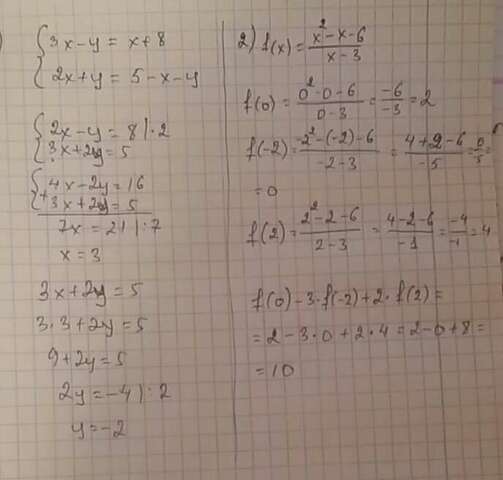 )
3x-y = x+8
2x+y = 5-x-y
2x-y = 8 |·2
3x+2y = 5
4x-2y = 16
+ 3x+2y = 5
7x = 21 |:7
x = 3
3x+2y = 5
3·3+2y = 5
9+2y = 5
2y = -4 |:2
y = -2
2) f(x) = (x²-x-6)/(x-3)
f(0) = (0²-0-6)/(0-3) = -6/-3 = 2
f(-2) = (-2²-(-2)-6)/(-2-3) = (4+2-6)/-5 = 0/5 =
= 0
f(2) = (2²-2-6)/(2-3) = (4-2-6)/-1 = -4/-1 = 4
f(0)-3·f(-2)+2·f(2) =
= 2-3·0+2·4 = 2-0+8 =
= 10